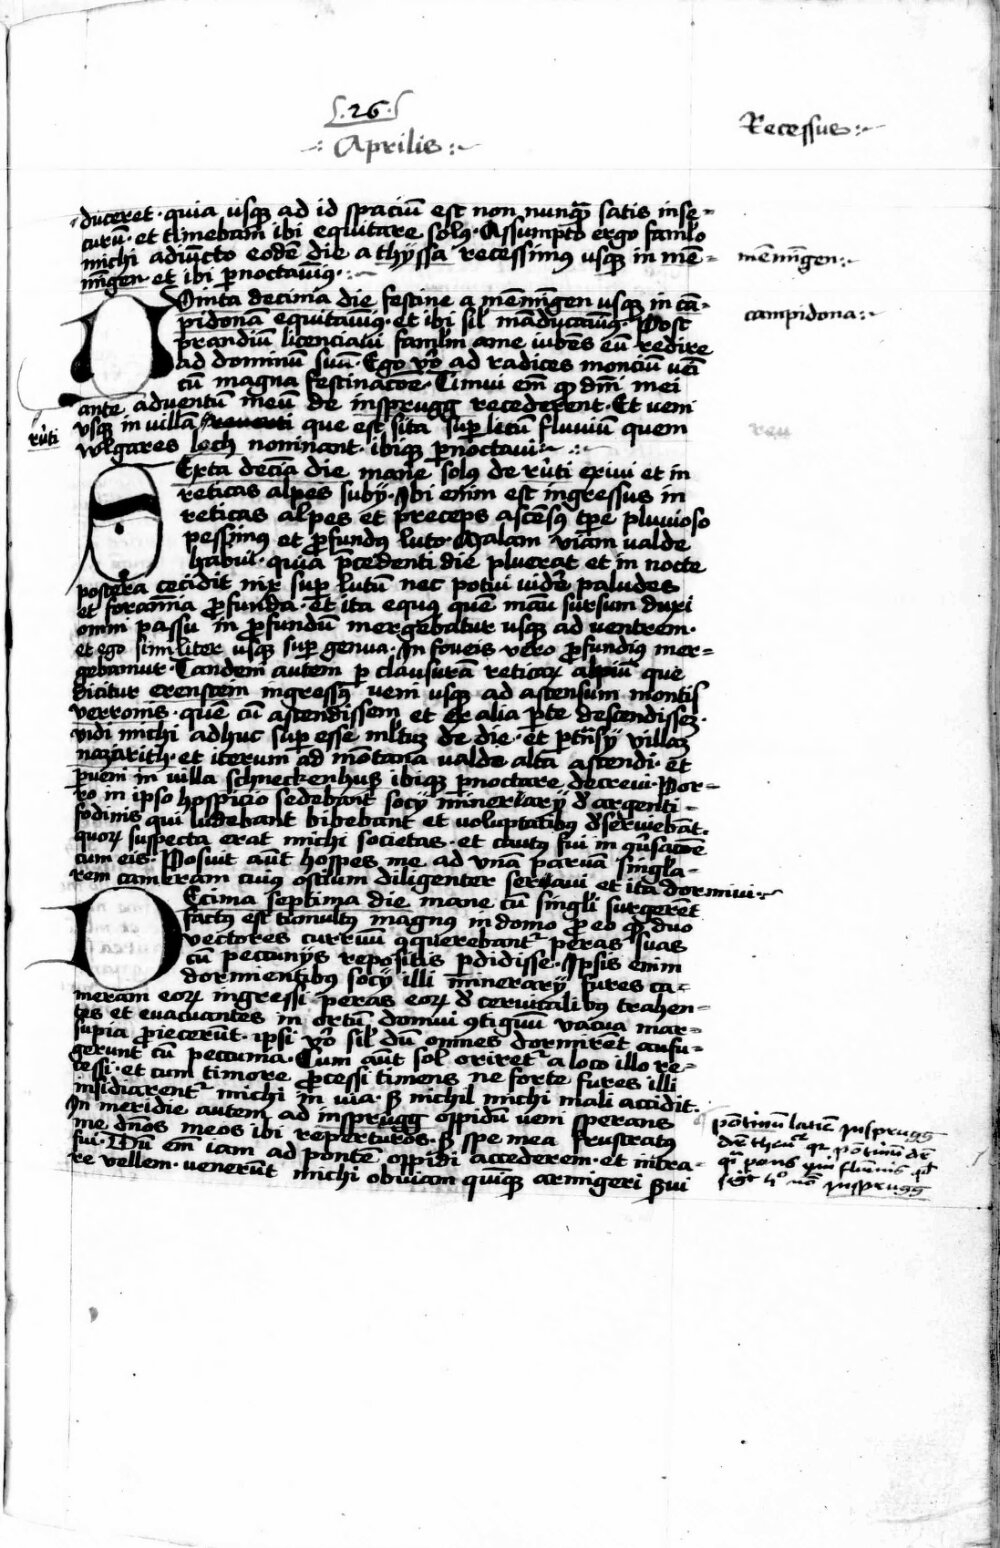 .26.
Aprilis
Recessus
duceret. quia usqꝫ ad id spaciū est non nunquā satis inse=
curū. et timebam ibi equitare solꝰ. Assumpto ergo famlo
michi adiūcto eodē die a thyssa recessimꝰ usqꝫ in mē=
mīgen. et ibi ꝑnoctauimꝰ.
mēmīgen
Uinta decima die festine a mēmīgen usqꝫ in cā=
pidonā equitauimꝰ. et ibi sil māducauimꝰ. Post
campidona
prandiū licenciaui famlm a me iubēs eū redire
ad dominū suū. Ego v̄o ad radices monciū veni
cū magna festinacōe. Timui em̄ qꝫ dn̄i mei
ante aduentū meū de insprugg recederent. Et veni
usqꝫ in villā reuerti que est sita suꝑ licū fluuiū quem
rūti
wlgares lech nominant. ibiqꝫ ꝑnoctaui
Exta decīa die mane solꝰ de rūti exiui et in
reticas alpes subij. Ibi enim est ingressus in
reticas alpes et preceps ascēsꝰ tꝑe pluuioso
pessimꝰ et ꝓfundꝰ luto. Malam viam valde
habui. quia p̄cedenti die pluerat et in nocte
postera cecidit nix suꝑ lutū nec potui videre paludes
et foramīa ꝓfunda. et ita equꝰ quē manu sursum duxi
omni passu in ꝓfundū mergebatur usqꝫ ad ventrem.
et ego similiter usqꝫ suꝑ genua. In foueis vero ꝓfundiꝰ mer=
gebamur. Tandem autem ꝑ clausurā reticaꝝ alpiū que
dicitur erenstein ingressꝰ veni usqꝫ ad ascensum montis
verronis. quē cū ascendissem et ex alia ꝑte descendissem.
vidi michi adhuc suꝑesse mltū de die. et ꝑtn̄sij villam
nazarith. et iterum ad mōtana valde alta ascendi. et
ꝑueni in villā schneckenhuß ibiqꝫ ꝑnoctare decreui. Por=
ro in ipso hospicio sedebant socij minerarij d argenti=
fodinis qui ludebant bibebant et voluptatibꝰ dseruiebāt.
quoꝝ suspecta erat michi societas. et cautꝰ fui in ꝯūsacōe
cum eis. Posuit aūt hospes me ad vnā paruā singla=
rem cameram cuius ostium diligenter seraui et ita dormiui.
Ecima septima die mane cū singli surgerēt
factus est tumultꝰ magnus in domo ꝓ eo qꝫ duo
vectores curruū ꝯquerebantᷣ peras suas
cū peccunijs repositis ꝑdidisse. Ipsis enim
dormientibus socij illi minerarij fures ca=
meram eoꝝ ingressi peras eoꝝ d ceruicalibꝰ trahen=
tes et euacuantes in ortū domui ꝯtiguū vacua mar=
supia proiecerūt. ipsi v̄o sil dū omnes dormirēt aufu=
gerunt cū peccunia. Cum aūt sol oriretᷣ a loco illo re=
cessi. et cum timore ꝓcessi timens ne forte fures illi
insidiarentᷣ michi in via. sꝫ nichil michi mali accidit.
In meridie autem ad insprugg oppidū veni sperans
me dn̄os meos ibi reperturos. sꝫ spe mea frustratus
fui. Dū em̄ iam ad pontē oppidi accederem. et intra=
re vellem. venerūt michi obuiam quīqꝫ armigeri ꝑui
insprugg